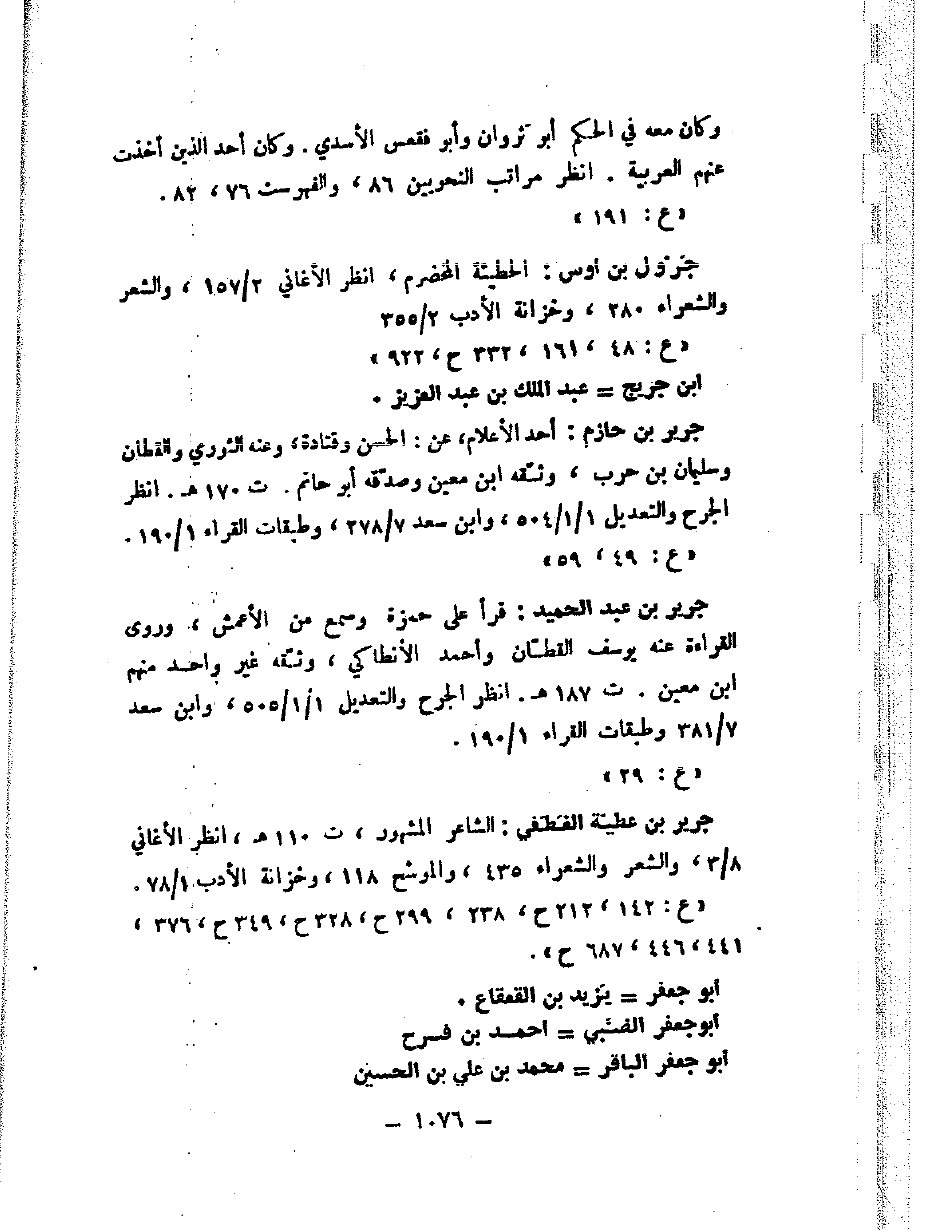 وكان معه في الحكم أبو ثروان وأبو فقعس الأسدي . وكان أحد الذين أخذت
عنهم العربية . انظر مراتب النحويين ٨٦ ، والفهرست ٧٦ ، ٨٢ .
« ع : ١٩١ »
جَرْوَل بن أوس : الحطيئة المخضرم ، انظر الأغاني ١٥٧/٢ ، والشعر
والشعراء ٢٨٠ ، وخزانة الأدب ٣٥٥/٢
« ع : ٤٨ ، ١٦١ ، ٣٣٢ ح ، ٩٢٢ »
ابن جريج = عبد الملك بن عبد العزيز .
جرير بن حازم : أحد الأعلام، عن : الحسن وقتادة، وعنه الثوري والقطان
وسليمان بن حرب ، وثّقه ابن معين وصدّقه أبو حاتم . ت ١٧٠ هـ . انظر
الجرح والتعديل ٥٠٤/١/١ ، وابن سعد ٢٧٨/٧ ، وطبقات القراء ١٩٠/١ .
« ع : ٤٩ ، ٥٩ »
جرير بن عبد الحميد : قرأ على حمزة وسمع من الأعمش ، وروى
القراءة عنه يوسف القطّان وأحمد الأنطاكي ، وثّقه غير واحد منهم
ابن معين . ت ١٨٧ هـ . انظر الجرح والتعديل ٥٠٥/١/١ ، وابن سعد
٣٨١/٧ وطبقات القراء ١٩٠/١ .
« ع : ٢٩ »
جرير بن عطية الخَطَفي : الشاعر المشهور ، ت ١١٠ هـ ، انظر الأغاني
٣/٨ ، والشعر والشعراء ٤٣٥ ، والموشح ١١٨ ، وخزانة الأدب ٧٨/١ .
« ع : ١٤٢ ، ٢١٢ ح ، ٢٣٨ ، ٢٩٩ ح ، ٣٢٨ ح ، ٣٤٩ ح ، ٣٧٦ ،
٤٤١ ، ٤٤٦ ، ٦٨٧ ح » .
أبو جعفر = يزيد بن القعقاع .
أبو جعفر الضبّي = احمد بن فرح
أبو جعفر الباقر = محمد بن علي بن الحسين
– ١٠٧٦ –